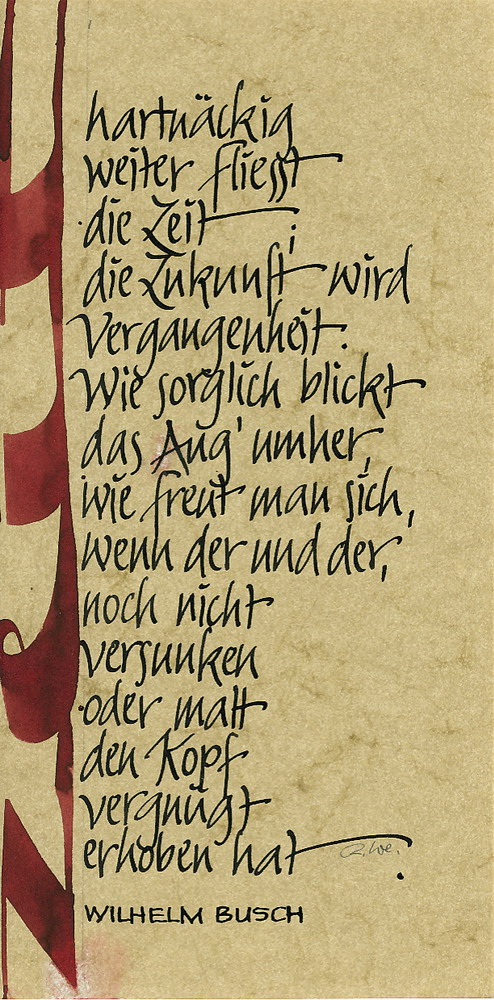 hartnäckig
weiter fliesst
die Zeit;
die Zukunft wird
Vergangenheit.
Wie sorglich blickt
das Aug' umher,
wie freut man sich,
wenn der und der,
noch nicht
versunken
oder matt
den Kopf
vergnügt
erhoben hat.
WILHELM BUSCH